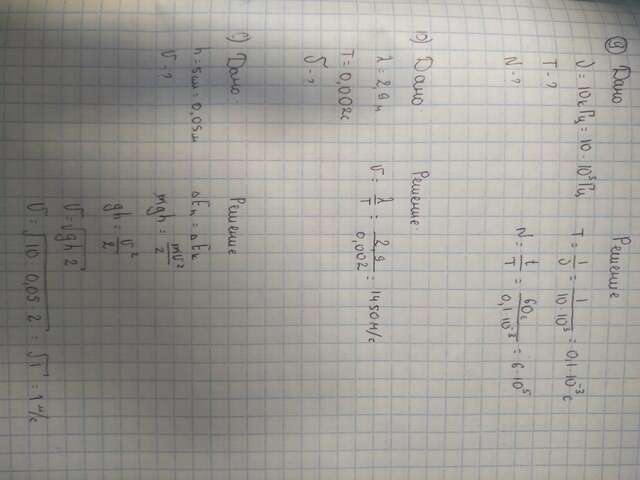 9) Дано
ν = 10кГц = 10·10³Гц
T - ?
N - ?
Решение
T = 1/ν = 1/10·10³ = 0,1·10⁻³ с
N = t/T = 60с/0,1·10⁻³ = 6·10⁵
Дано:
λ = 2,9 м
T = 0,002с
V - ?
Решение
V = λ/T = 2,9/0,002 = 1450 м/с
Дано:
h = 5см = 0,05м
V - ?
Решение
mgh = mV²/2
gh = V²/2
V = √gh 2
V = √10 0,05 2 = √1 = 1 м/с